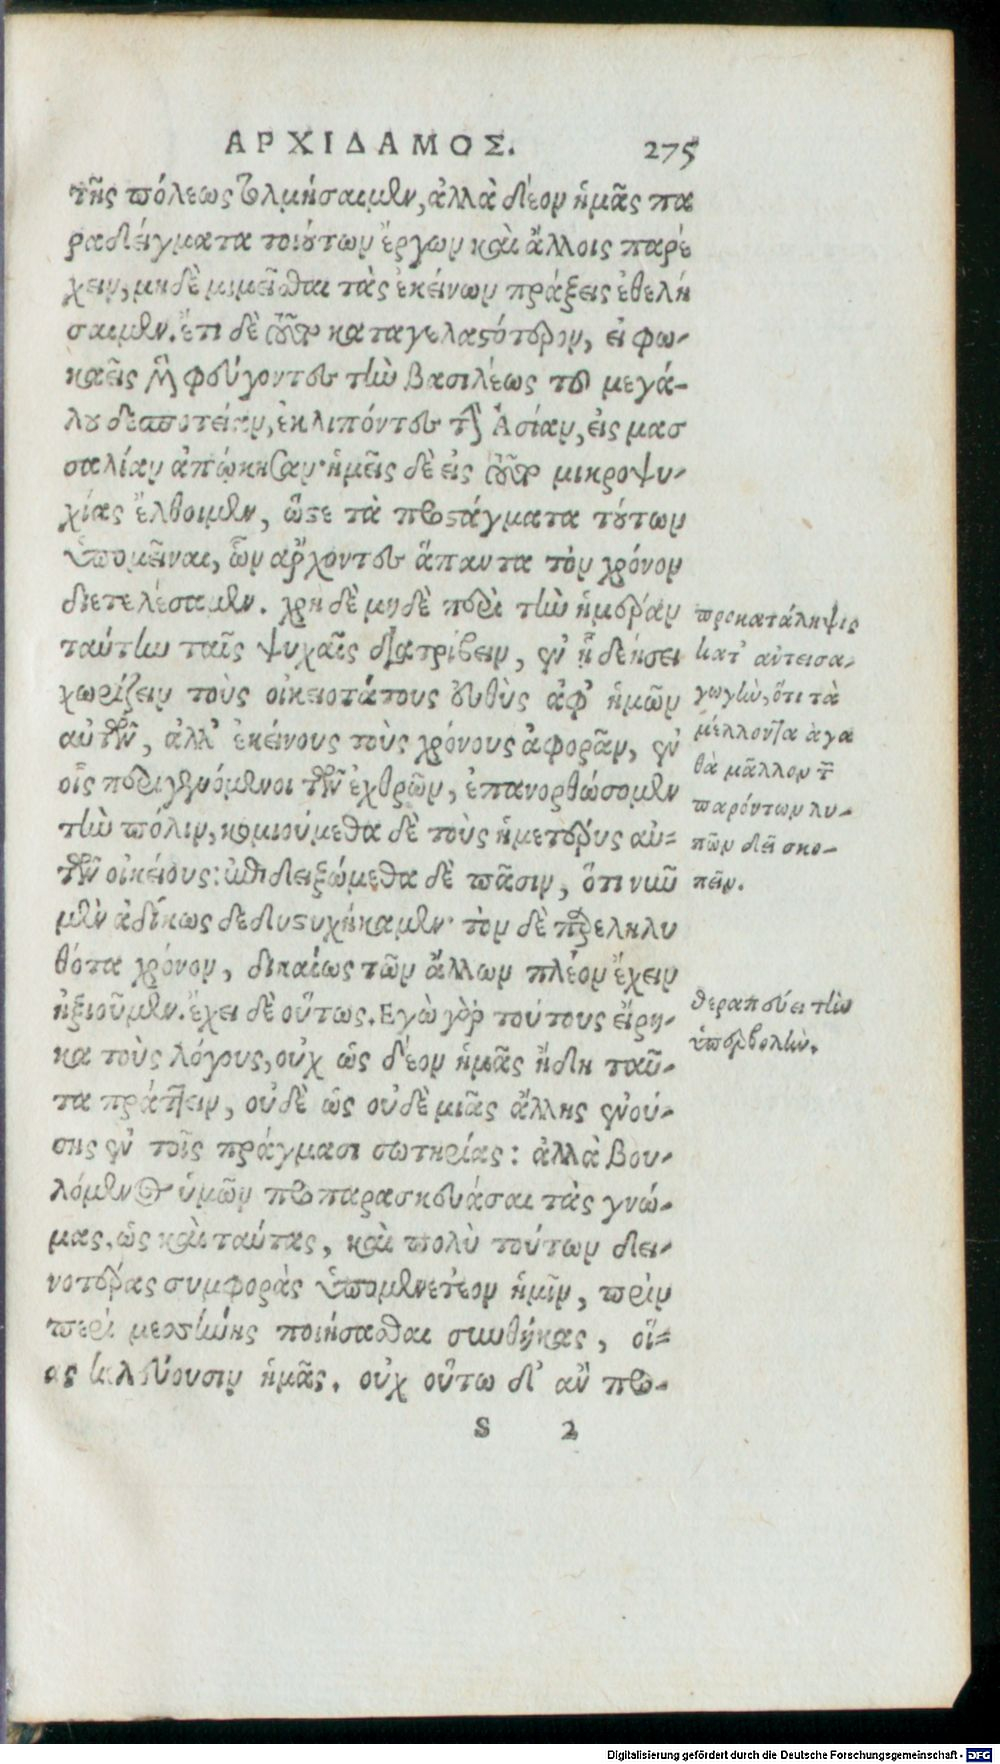 ΑΡΧΙΔΑΜΟΣ. 275
τῆς πόλεως τολμήσαιμεν, ἀλλὰ δέον ἡμᾶς πα
ραδείγματα τοιούτων ἔργων καὶ ἄλλοις παρέ
χειν, μηδὲ μιμεῖσθαι τὰς ἐκείνων πράξεις ἐθελή
σαιμεν. ἔτι δὲ καταγελαστότερον, εἰ φω-
καεῖς μὲν φεύγοντες τὴν βασιλέως τοῦ μεγά-
λου δεσποτείαν, ἐκλιπόντες τὴν Ἀσίαν, εἰς μασ
σαλίαν ἀπῴκησαν· ἡμεῖς δὲ εἰς τοσοῦτον μικροψυ-
χίας ἔλθοιμεν, ὥστε τὰ προστάγματα τούτων
ὑπομεῖναι, ὧν ἄρχοντες ἅπαντα τὸν χρόνον
διετελέσαμεν. χρὴ δὲ μηδὲ περὶ τὴν ἡμέραν
ταύτην ταῖς ψυχαῖς διατρίβειν, ἐν ᾗ δεήσει
χωρίζειν τοὺς οἰκειοτάτους εὐθὺς ἀφ' ἡμῶν
αὐτῶν, ἀλλ' ἐκείνους τοὺς χρόνους ἀφορᾶν, ἐν
οἷς περιγενόμενοι τῶν ἐχθρῶν, ἐπανορθώσομεν
τὴν πόλιν, κομιούμεθα δὲ τοὺς ἡμετέρους αὐ-
τῶν οἰκείους: ἐπιδειξώμεθα δὲ πᾶσιν, ὅτι νῦν
μὲν ἀδίκως δεδυστυχήκαμεν· τὸν δὲ παρεληλυ
θότα χρόνον, δικαίως τῶν ἄλλων πλέον ἔχειν
ἠξιοῦμεν. ἔχει δὲ οὕτως. Εγὼ γὰρ τούτους εἴρη-
κα τοὺς λόγους, οὐχ ὡς δέον ἡμᾶς ἤδη ταῦ-
τα πράττειν, οὐδὲ ὡς οὐδὲ μιᾶς ἄλλης ἐνού-
σης ἐν τοῖς πράγμασι σωτηρίας: ἀλλὰ βου-
λόμενος ὑμῶν προπαρασκευάσαι τὰς γνώ-
μας, ὡς καὶ ταύτας, καὶ πολὺ τούτων δει-
νοτέρας συμφορὰς ὑπομενετέον ἡμῖν, πρὶν
περὶ μεσσήνης ποιήσασθαι συνθήκας, οἵ-
ας κελεύουσιν ἡμᾶς. οὐχ οὕτω δ' ἂν προ-
S 2
προκατάληψις
κατ' ἀντεισα-
γωγὴν, ὅτι τὰ
μέλλοντα ἀγα
θὰ μᾶλλον τῶν
παρόντων λυ-
πῶν δεῖ σκο-
πεῖν.
θεραπεύει τὴν
ὑπερβολὴν.
Digitalisierung gefördert durch die Deutsche Forschungsgemeinschaft - DFG